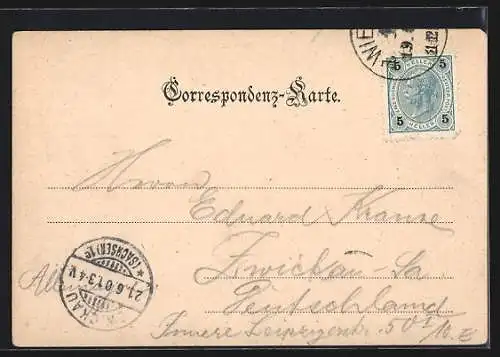 WIE
5 HELLER 5
5 HELLER 5
Correspondenz-Karte.
Herrn
Eduard Krause
Zwickau Sa.
Deutschland
Innere Leipzigerstr. 50
ZWICKAU
(SACHSEN) 1c
21.6.01. 3-4 N.